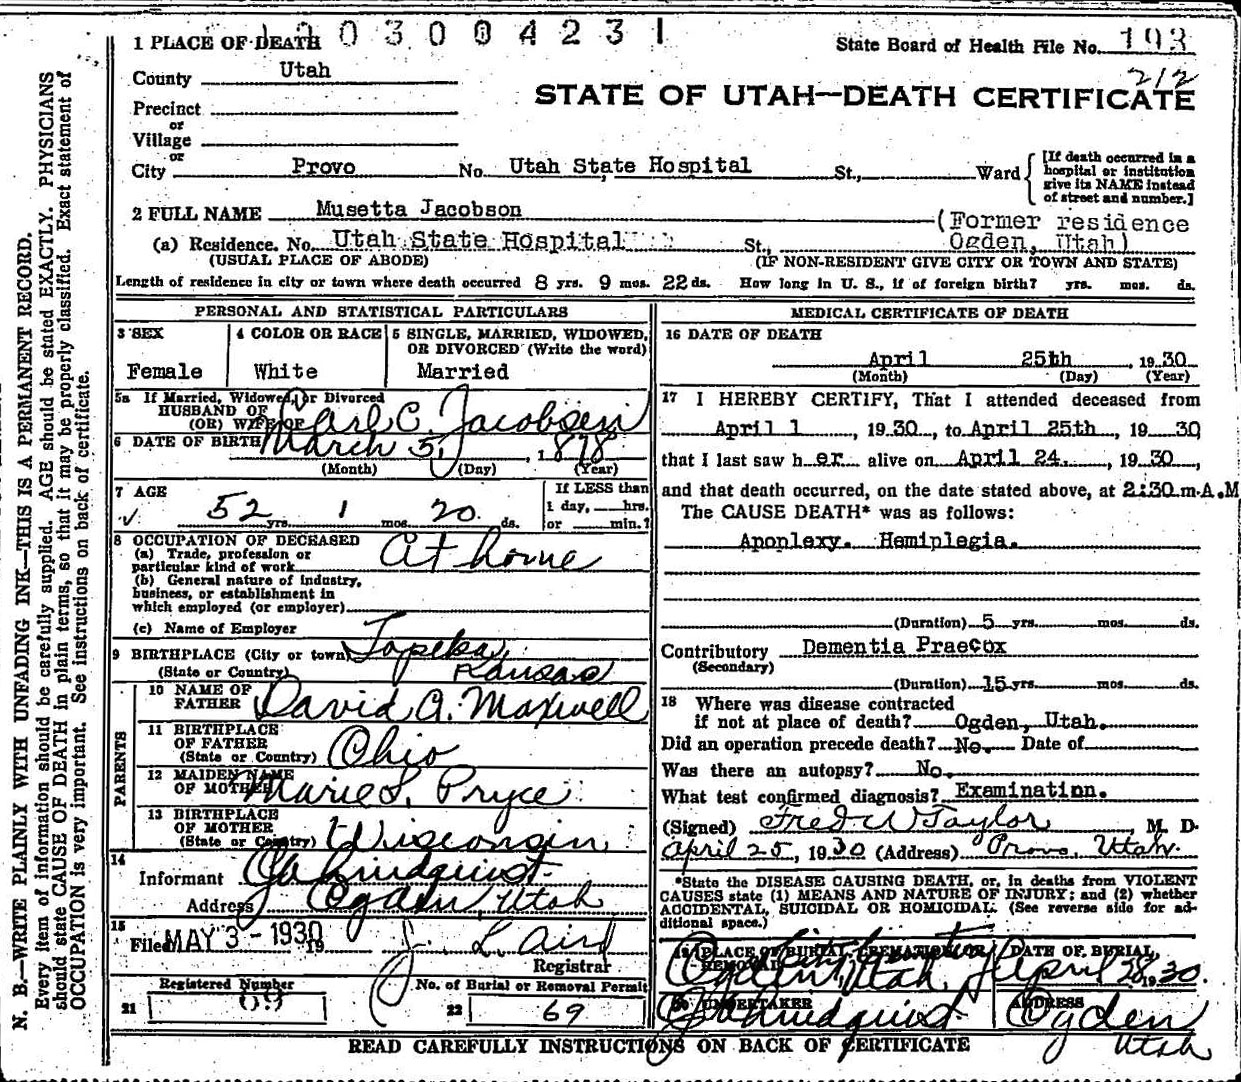 1 PLACE OF DEATH 0 3 0 0 4 2 3 1
State Board of Health File No. 193
212
County Utah
STATE OF UTAH—DEATH CERTIFICATE
Precinct
or
Village
or
City Provo No. Utah State Hospital St., Ward
[If death occurred in a
hospital or institution
give its NAME instead
of street and number.]
2 FULL NAME Musetta Jacobson
(Former residence
Ogden, Utah)
(a) Residence. No. Utah State Hospital St.,
(USUAL PLACE OF ABODE) (IF NON-RESIDENT GIVE CITY OR TOWN AND STATE)
Length of residence in city or town where death occurred 8 yrs. 9 mos. 22 ds. How long in U. S., if of foreign birth? yrs. mos. ds.
PERSONAL AND STATISTICAL PARTICULARS
3 SEX
Female
4 COLOR OR RACE
White
5 SINGLE, MARRIED, WIDOWED,
OR DIVORCED (Write the word)
Married
5a If Married, Widowed, or Divorced
HUSBAND OF
(OR) WIFE OF Carl C. Jacobsen
6 DATE OF BIRTH March 5, 1878
(Month) (Day) (Year)
7 AGE
52 yrs. 1 mos. 20 ds.
If LESS than
1 day, hrs.
or min.?
8 OCCUPATION OF DECEASED
(a) Trade, profession or
particular kind of work At home
(b) General nature of industry,
business, or establishment in
which employed (or employer)
(c) Name of Employer
9 BIRTHPLACE (City or town) Topeka,
(State or Country) Kansas
PARENTS
10 NAME OF
FATHER David A. Maxwell
11 BIRTHPLACE
OF FATHER
(State or Country) Ohio
12 MAIDEN NAME
OF MOTHER Marie L. Pryce
13 BIRTHPLACE
OF MOTHER
(State or Country) Wisconsin
14
Informant Lindquist
Address Ogden, Utah
15
Filed MAY 3 - 1930 19 J. L. Aird
Registrar
Registered Number
21 69
No. of Burial or Removal Permit
22 69
MEDICAL CERTIFICATE OF DEATH
16 DATE OF DEATH
April 25th, 1930
(Month) (Day) (Year)
17 I HEREBY CERTIFY, That I attended deceased from
April 1, 1930, to April 25th, 1930
that I last saw her alive on April 24., 1930,
and that death occurred, on the date stated above, at 2:30 m. A.M
The CAUSE DEATH* was as follows:
Apoplexy. Hemiplegia.
(Duration) 5 yrs. mos. ds.
Contributory Dementia Praecox
(Secondary)
(Duration) 15 yrs. mos. ds.
18 Where was disease contracted
if not at place of death? Ogden, Utah.
Did an operation precede death? No. Date of
Was there an autopsy? No.
What test confirmed diagnosis? Examination.
(Signed) Fred W Taylor M. D.
April 25, 1930 (Address) Provo, Utah.
*State the DISEASE CAUSING DEATH, or, in deaths from VIOLENT
CAUSES state (1) MEANS AND NATURE OF INJURY; and (2) whether
ACCIDENTAL, SUICIDAL OR HOMICIDAL. (See reverse side for ad-
ditional space.)
19 PLACE OF BURIAL, CREMATION OR
REMOVAL
Ogden, Utah
DATE OF BURIAL
April 28, 1930.
20 UNDERTAKER
Lindquist
ADDRESS
Ogden
Utah
READ CAREFULLY INSTRUCTIONS ON BACK OF CERTIFICATE
N. B.—WRITE PLAINLY WITH UNFADING INK—THIS IS A PERMANENT RECORD.
Every item of information should be carefully supplied. AGE should be stated EXACTLY. PHYSICIANS
should state CAUSE OF DEATH in plain terms, so that it may be properly classified. Exact statement of
OCCUPATION is very important. See instructions on back of certificate.